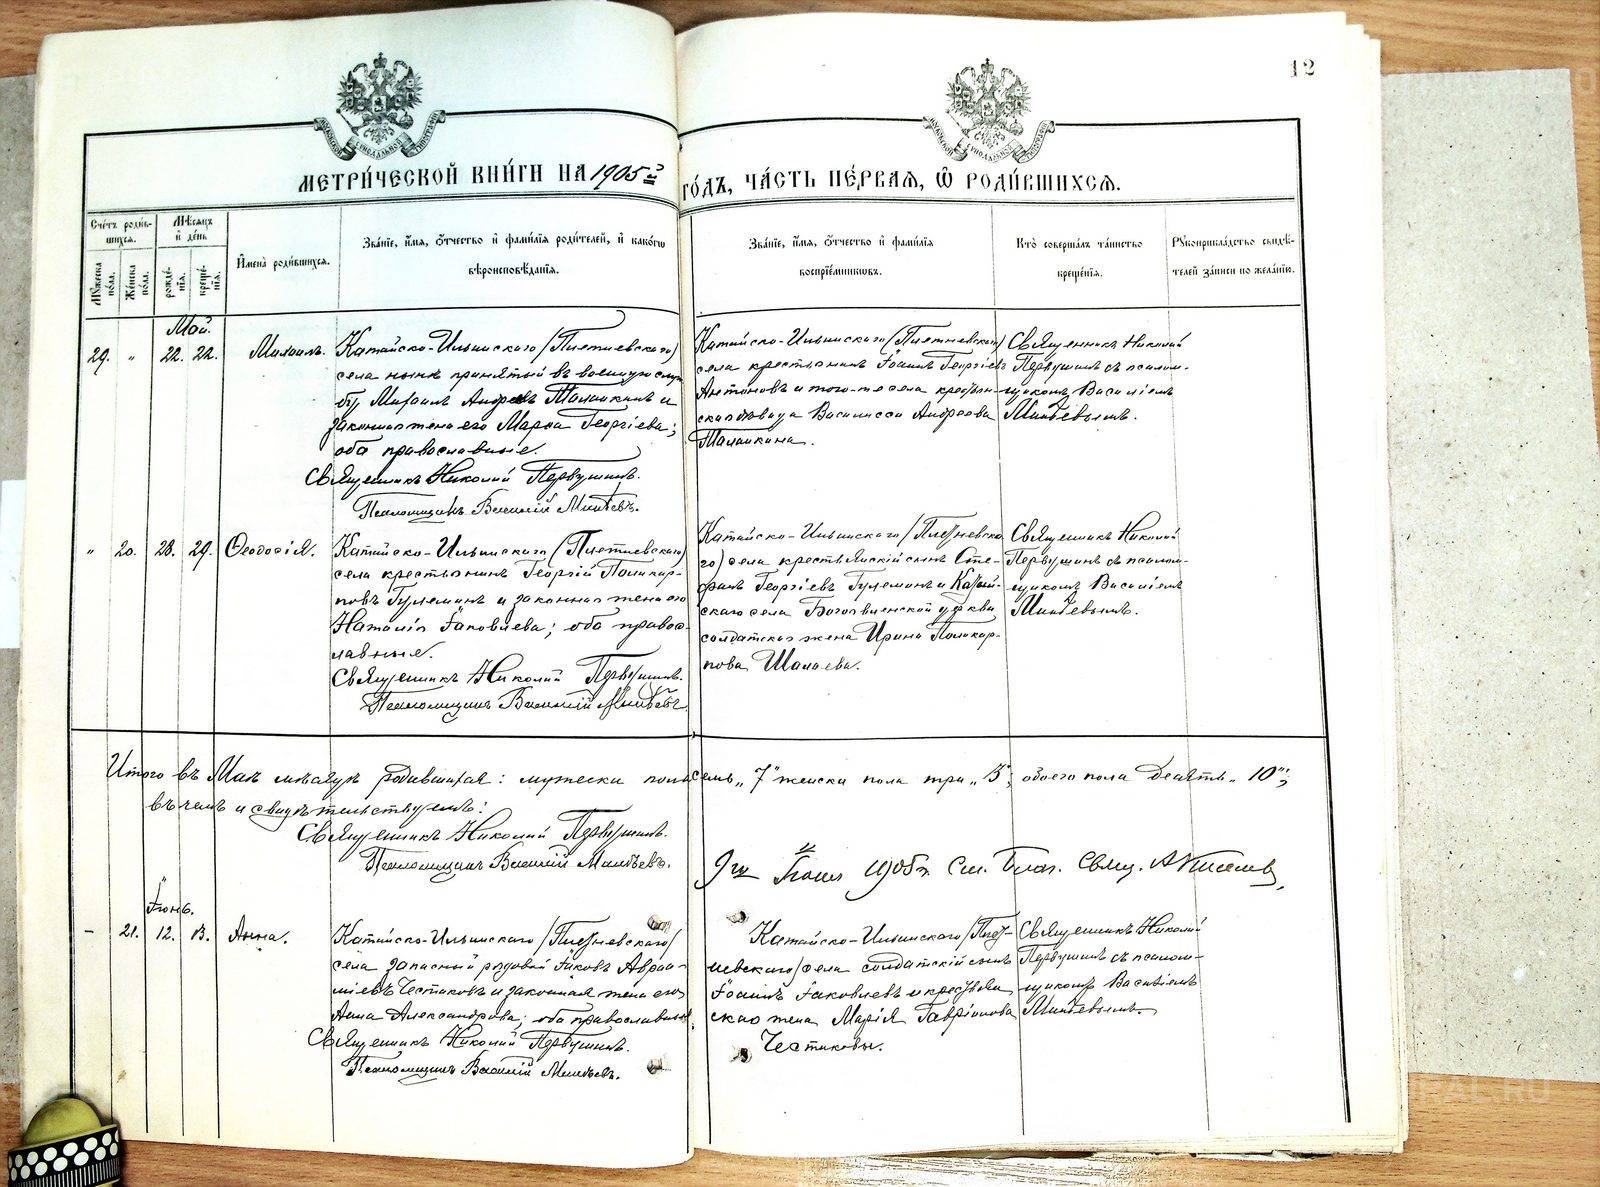 12
МОСКОВСКОЙ СѴНОДАЛЬНОЙ ТИПОГРАФІИ
МОСКОВСКОЙ СѴНОДАЛЬНОЙ ТИПОГРАФІИ
МЕТРИ́ЧЕСКОЙ КНИ́ГИ НА 1905й ГО́ДЪ, ЧА́СТЬ ПЕ́РВАЯ, Ѡ РОДИ́ВШИХСЯ.
Сче́тъ роди́вшихся.
Му́жеска по́ла.
Же́нска по́ла.
Мѣ́сяцъ и де́нь
рожде́нія.
креще́нія.
Имена̀ роди́вшихся.
Зва́ніе, и́мя, о́тчество и фами́лія роди́телей, и како́гѡ
вѣроисповѣ́данія.
Зва́ніе, и́мя, о́тчество и фами́лія
воспріе́мниковъ.
Кто̀ соверша́лъ та́инство
креще́нія.
Рукоприкла́дство свидѣ́-
телей за́писи по жела́нію.
Май.
29. " 22. 22. Михаилъ.
Катайско-Ильинскаго /Плетневскаго/
села нынѣ принятый въ военную слу-
жбу Михаилъ Андреевъ Малаикинъ и
законная жена его Марѳа Георгіева;
оба православные.
Священникъ Николай Первушинъ.
Псаломщикъ Василій Минѣевъ.
Катайско-Ильинскаго /Плетневскаго/
села крестьянинъ Іоаннъ Георгіевъ
Антоновъ и того-же села крестьян-
ская дѣвица Василисса Андреева
Малаикина.
Священникъ Николай
Первушинъ съ псалом-
щикомъ Василіемъ
Минѣевымъ.
" 20. 28. 29. Ѳеодосія.
Катайско-Ильинскаго /Плетневскаго/
села крестьянинъ Георгій Поликар-
повъ Гулеминъ и законная жена его
Наталія Іаковлева; оба правос-
лавные.
Священникъ Николай Первушинъ.
Псаломщикъ Василій Минѣевъ
Катайско-Ильинскаго /Плетневска-
го/ села крестьянскій сынъ Сте-
фанъ Георгіевъ Гулеминъ и Катай-
скаго села Богоявленской церкви
солдатская жена Ирина Поликар-
пова Шалаева.
Священникъ Николай
Первушинъ съ псалом-
щикомъ Василіемъ
Минѣевымъ.
Итого въ Маѣ мѣсяцѣ родившихся: мужеска пола семь "7" женска пола три "3", обоего пола десять "10";
въ чемъ и свидѣтельствуемъ:
Священникъ Николай Первушинъ.
Псаломщикъ Василій Минѣевъ.
9го Іюня 1905 г. См. Благ. Свящ. А Киселевъ
Іюнь.
- 21. 12. 13. Анна.
Катайско-Ильинскаго /Плетневскаго/
села запасный рядовой Іаковъ Авраа-
міевъ Честиковъ и законная жена его
Анна Александрова; оба православные.
Священникъ Николай Первушинъ.
Псаломщикъ Василій Минѣевъ.
Катайско-Ильинскаго /Плет-
невскаго/ села солдатскій сынъ
Іоаннъ Іаковлевъ и крестьян-
ская жена Марія Гавріилова
Честиковы.
Священникъ Николай
Первушинъ съ псалом-
щикомъ Василіемъ
Минѣевымъ.